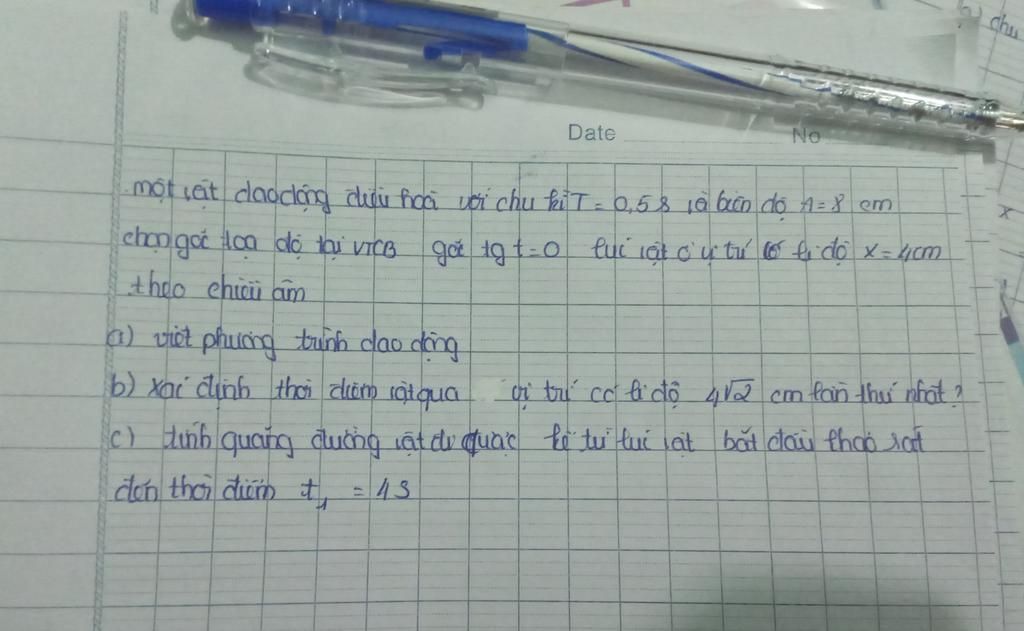 Date No
b) chu
một vật dao động điều hoà với chu kì T = 0,5s và biên độ A = 8 cm
chọn gốc tọa độ tại VTCB gốc tg t = 0 lúc vật ở vị trí có li độ x = 4cm
theo chiều âm
a) viết phương trình dao động
b) xác định thời điểm vật qua vị trí có li độ 4√2 cm lần thứ nhất?
c) tính quãng đường vật đi được kể từ lúc vật bắt đầu khảo sát
đến thời điểm t₁ = 4s